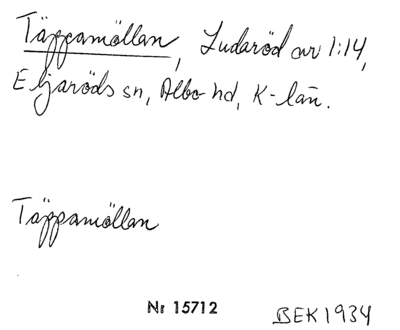 Täppamöllan, Ludaröd av 1:14,
Eljaröds sn, Albo hd, K-län.
Täppamöllan
Nr 15712
BEK 1934